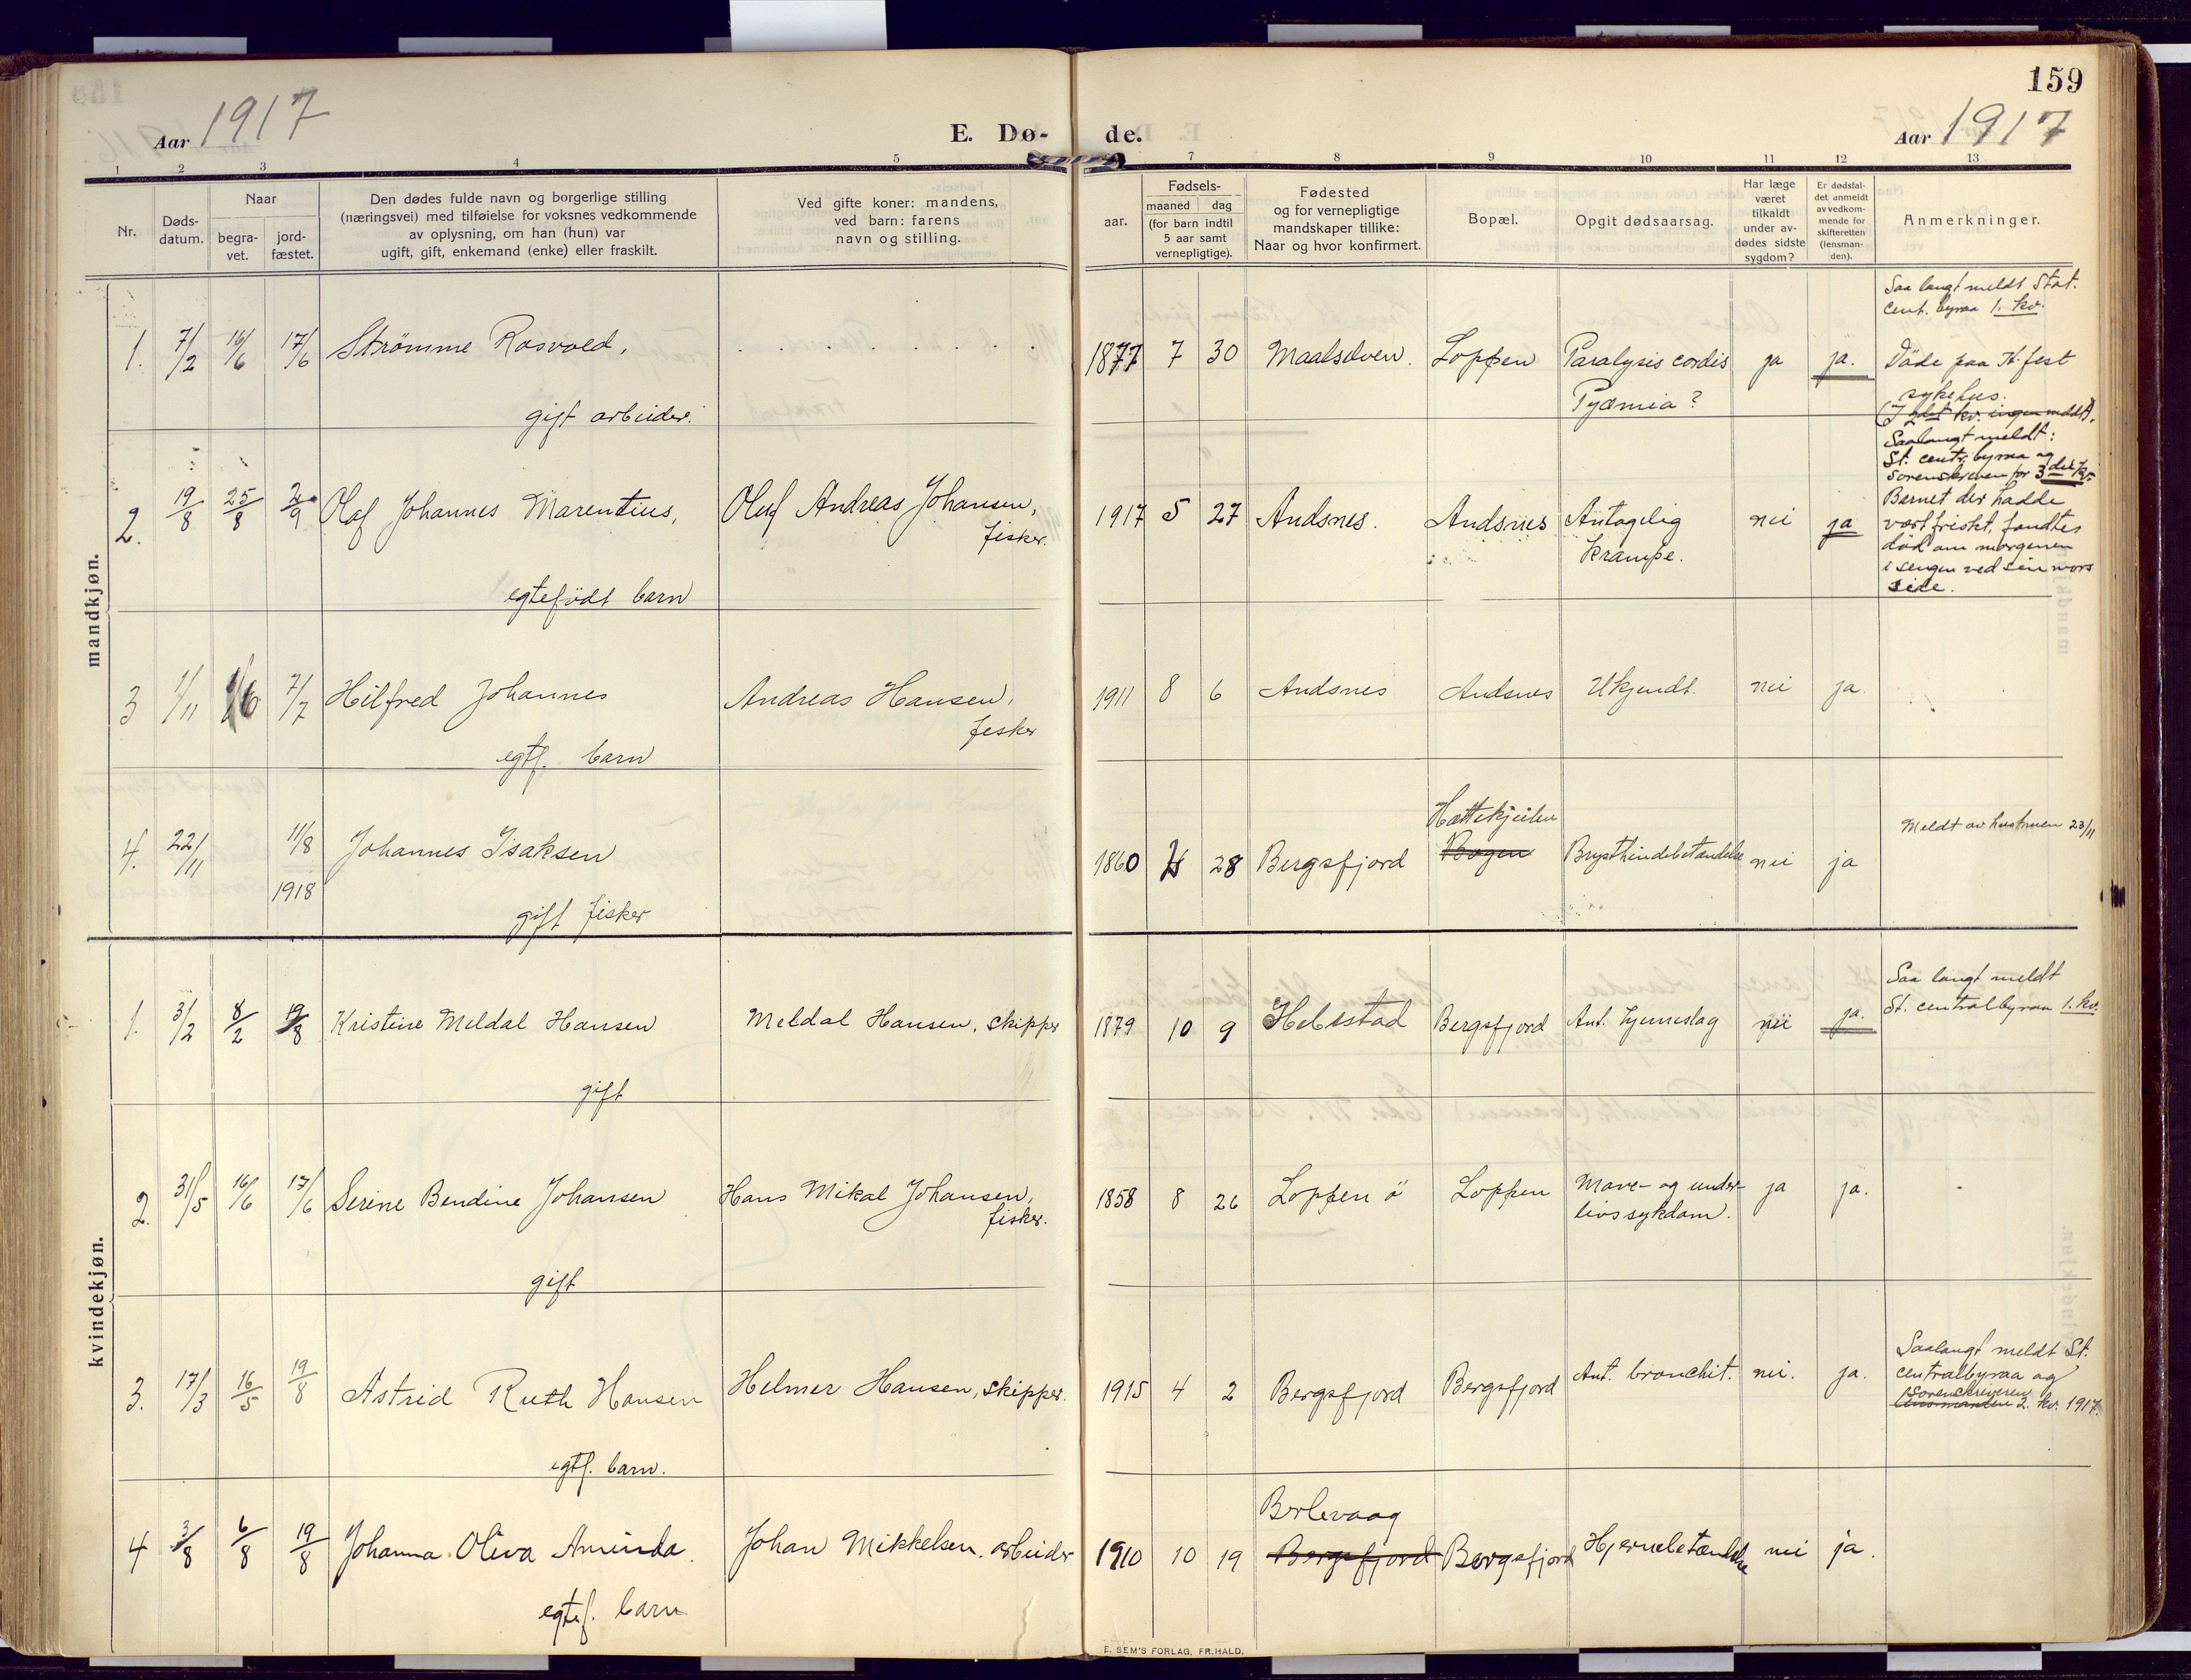 159
Aar 1917
E. Dø-
de.
Aar 1917
1 2 3 4 5 6 7 8 9 10 11 12 13
Nr.
Døds-
datum.
Naar
begra-
vet.
jord-
fæstet.
Den dødes fulde navn og borgerlige stilling
(næringsvei) med tilføielse for voksnes vedkommende
av oplysning, om han (hun) var
ugift, gift, enkemand (enke) eller fraskilt.
Ved gifte koner: mandens,
ved barn: farens
navn og stilling.
aar.
Fødsels-
maaned dag
(for barn indtil
5 aar samt
vernepligtige).
Fødested
og for vernepligtige
mandskaper tillike:
Naar og hvor konfirmert.
Bopæl.
Opgit dødsaarsag.
Har læge
været
tilkaldt
under av-
dødes sidste
sygdom?
Er dødsfal-
det anmeldt
av vedkom-
mende for
skifteretten
(lensman-
den).
Anmerkninger.
mandkjøn.
Saa langt meldt Stat.
cent. byraa 1. kv.
1. 7/2 16/6 17/6 Strømme Rosvold, 1877 7 30 Maalselven. Loppen Paralysis cordis ja ja. Døde paa H.fest
Pyæmia? sykehus.
gift arbeider.
(I 2det kv. ingen meldt).
Saalangt meldt:
St. centr. byraa og
Sorenskriven for 3die kv.
2. 19/8 25/8 2/9 Olaf Johannes Marentius, Oluf Andreas Johansen, 1917 5 27 Andsnes. Andsnes Antagelig nei ja Barnet der hadde
fisker. krampe. vært friskt, fandtes
død om morgenen
i sengen ved sin mors
side.
egtefødt barn
3 1/11 1/6 7/7 Hilfred Johannes Andreas Hansen, 1911 8 6 Andsnes Andsnes Ukjendt. nei ja.
fisker
egtf. barn
Hattekjeilen
4. 22/11 11/8 Johannes Isaksen 1860 28 Bergsfjord Bogen Brysthindebetændelse nei ja Meldt av hustruen 23/11
1918
gift fisker
kvindekjøn.
Saa langt meldt
St. centralbyraa 1. kv.
1. 3/2 8/2 19/8 Kristine Meldal Hansen Meldal Hansen, skipper 1879 10 9 Bergsfjord Ant. hjerneslag nei ja.
gift
2. 31/5 16/6 17/6 Serine Bendine Johansen Hans Mikal Johansen, 1858 8 26 Loppen ö Loppen Mave- og under- ja ja.
fisker. livssykdom.
gift
3. 17/3 16/5 19/8 Astrid Ruth Hansen Helmer Hansen, skipper. 1915 4 2 Bergsfjord Bergsfjord Ant. bronchit. nei. ja. Saalangt meldt St.
centralbyraa og
sorenskriveren
lensmanden 2. kv. 1917.
egtf. barn.
Berlevaag
4 3/8 6/8 19/8 Johanna Oliva Aminda. Johan Mikkelsen. arbeider 1910 10 19 Bergsfjord Bergsfjord Hjernebetændelse nei ja.
egtef. barn
E. SEM'S FORLAG, FR.HALD.